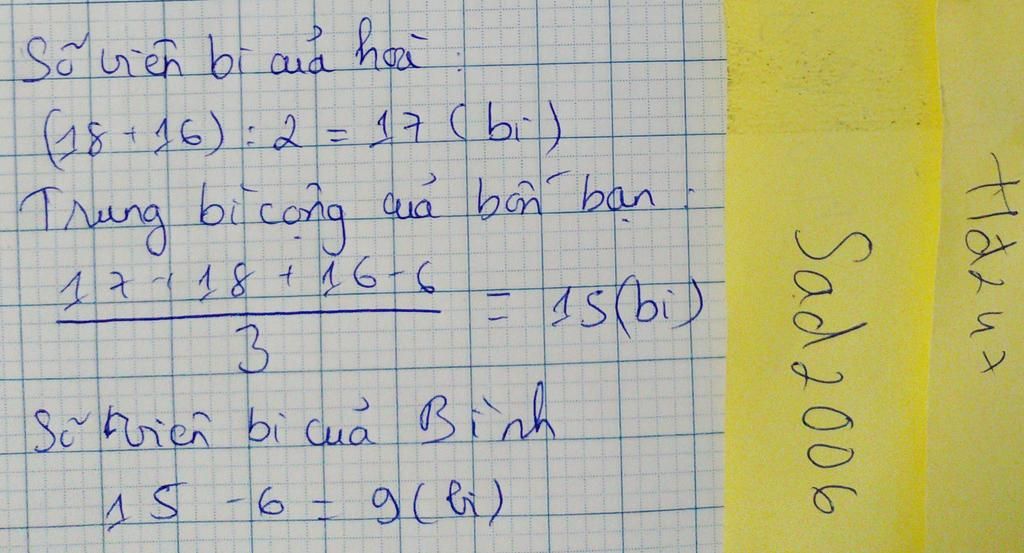 Số viên bi của hoà:
(18 + 16) : 2 = 17 (bi)
Trung bì cộng của bốn bạn:
17 + 18 + 16 - 6
3
= 15 (bi)
Số viên bi của Bình
15 - 6 = 9 (bi)
Sad2006